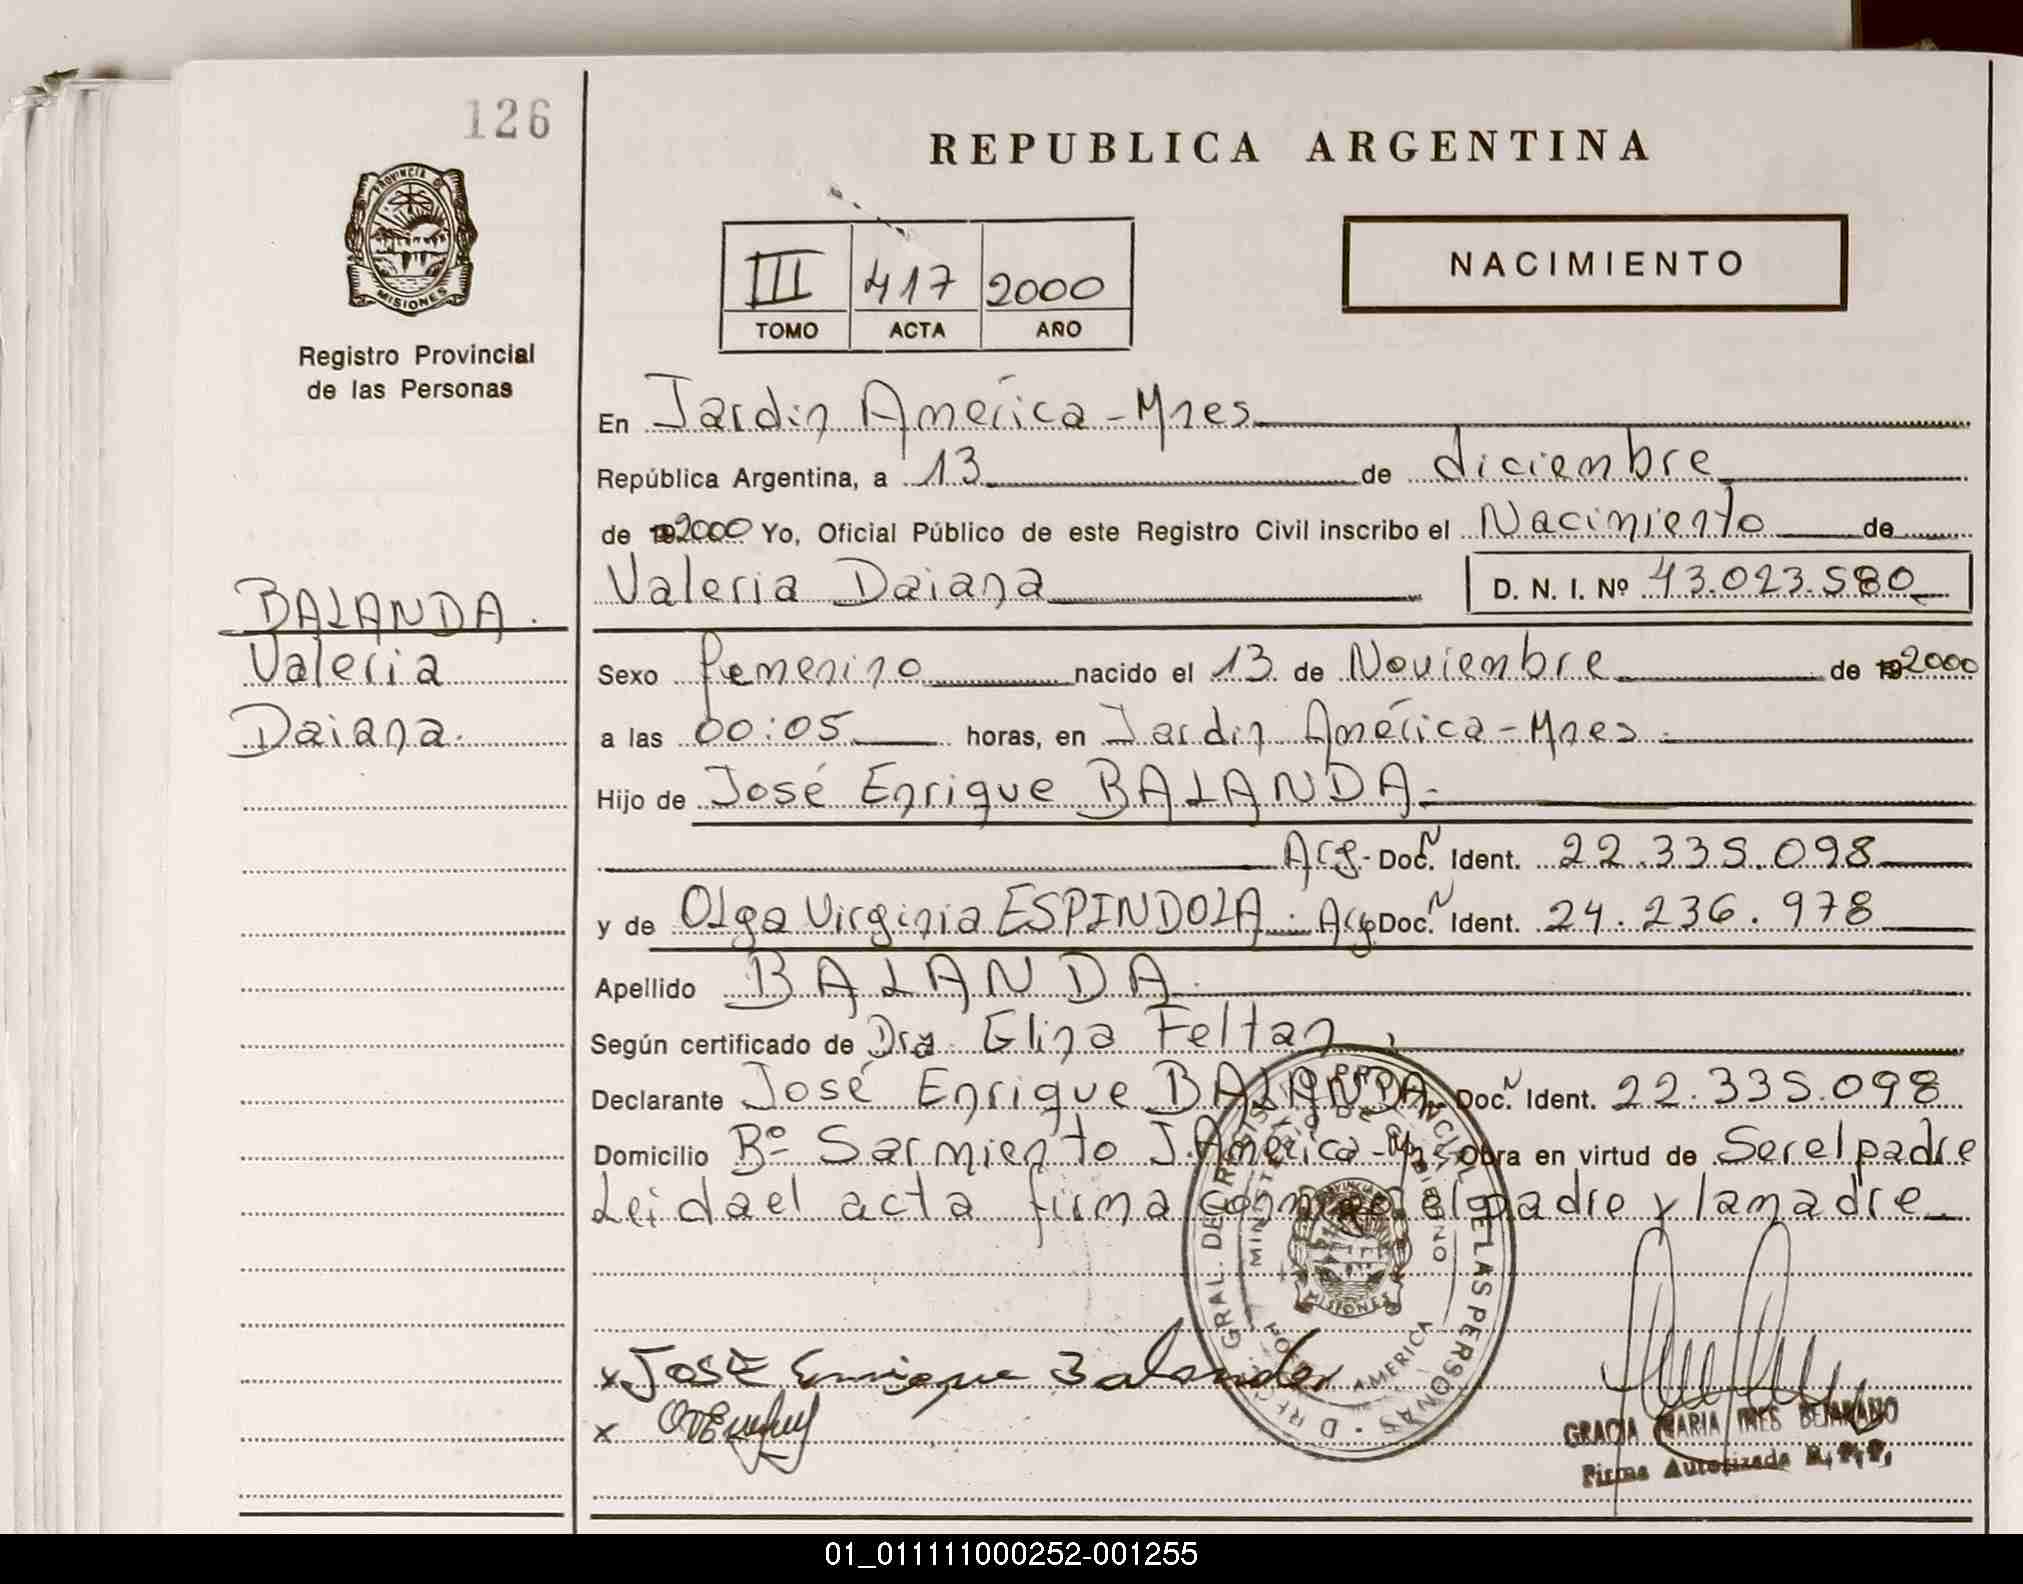 126
REPUBLICA ARGENTINA
PROVINCIA D
MISIONES
Registro Provincial
de las Personas
III 417 2000
TOMO ACTA AÑO
NACIMIENTO
En Jardin América - Mnes
República Argentina, a 13 de diciembre
de 2000 Yo, Oficial Público de este Registro Civil inscribo el Nacimiento de
Valeria Daiana D. N. I. Nº 43.023.580
BALANDA.
Valeria
Daiana.
Sexo femenino nacido el 13 de Noviembre de 2000
a las 00:05 horas, en Jardin América - Mnes.
Hijo de José Enrique BALANDA.-
Arg. Doc. N Ident. 22.335.098
y de Olga Virginia ESPINDOLA. Arg Doc. N Ident. 24.236.978
Apellido BALANDA.
Según certificado de Dra. Elina Feltan
Declarante José Enrique BALANDA Doc. N Ident. 22.335.098
Domicilio Bº Sarmiento J. América - Mnes Obra en virtud de Ser el padre
Leida el acta firma conmigo el padre y la madre
GRAL. DE REGISTRO PROVINCIAL DE LAS PERSONAS
MINISTERIO DE GOBIERNO
MISIONES
AMERICA
x José Enrique Balanda
x
GRACIA MARIA INES BEJARANO
Firma Autorizada R.P.P.
01_011111000252-001255